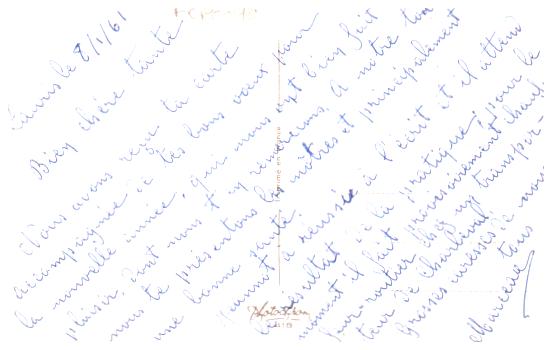 le 8/1/61
Bien chère tante
Nous avons reçu ta carte
accompagnée de tes bons vœux pour
la nouvelle année, qui nous ont bien fait
plaisir, dont nous t'en remercions. A notre tour
nous te présentons les nôtres et principalement
une bonne santé.
a réussi à l'écrit et il attend
le résultat de la pratique; pour le
moment il fait provisoirement chauf-
feur-routier chez un transpor-
teur de Charleval.
Grosses bises à nous
tous
Marcelle
Imprimé en France